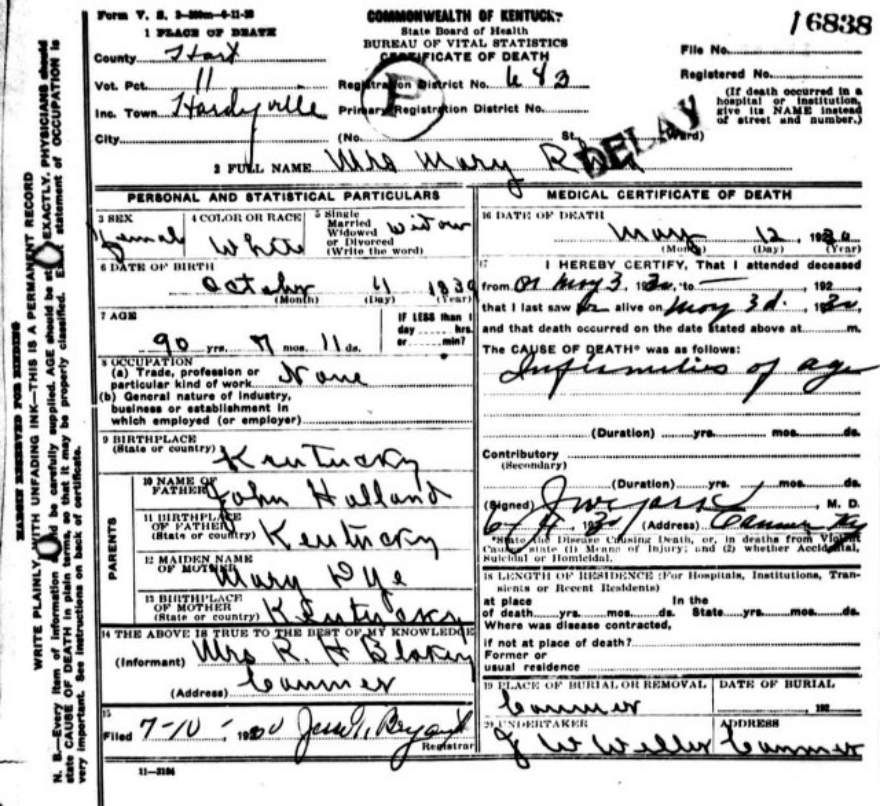 Form V. S.
COMMONWEALTH OF KENTUCKY
16838
1 PLACE OF DEATH
State Board of Health
BUREAU OF VITAL STATISTICS
CERTIFICATE OF DEATH
County Hart
File No.
Vot. Pct. 11
Registration District No. 683
Registered No.
Inc. Town Hardyville
Primary Registration District No.
(If death occurred in a hospital or institution, give its NAME instead of street and number.)
City
(No. St. Ward)
F
DELAY
2 FULL NAME Mrs Mary
PERSONAL AND STATISTICAL PARTICULARS
3 SEX female
4 COLOR OR RACE White
5 Single Married Widowed or Divorced (Write the word) Widow
6 DATE OF BIRTH
11
(Month) (Day) (Year)
7 AGE
90 yrs. 7 mos. 11 ds.
IF LESS than 1 day hrs. or min?
8 OCCUPATION
(a) Trade, profession or particular kind of work None
(b) General nature of industry, business or establishment in which employed (or employer)
9 BIRTHPLACE
(State or country) Kentucky
PARENTS
10 NAME OF FATHER John Holland
11 BIRTHPLACE OF FATHER (State or country) Kentucky
12 MAIDEN NAME OF MOTHER Mary Dye
13 BIRTHPLACE OF MOTHER (State or country) Kentucky
14 THE ABOVE IS TRUE TO THE BEST OF MY KNOWLEDGE
(Informant) Mrs R. H
(Address) Canmer
15
Filed 7-10-
Registrar
11-3184
MEDICAL CERTIFICATE OF DEATH
16 DATE OF DEATH
May 12
(Month) (Day) (Year)
17 I HEREBY CERTIFY, That I attended deceased
from May 3, to , 192
that I last saw alive on May 3d.
and that death occurred on the date stated above at m.
The CAUSE OF DEATH* was as follows:
Infirmities of age
(Duration) yrs. mos. ds.
Contributory
(Secondary)
(Duration) yrs. mos. ds.
(Signed) , M. D.
(Address) Canmer Ky
*State the Disease Causing Death, or, in deaths from Violent
Causes state (1) Means of Injury; and (2) whether Accidental,
Suicidal or Homicidal.
18 LENGTH OF RESIDENCE (For Hospitals, Institutions, Transients or Recent Residents)
at place of death yrs. mos. ds. In the State yrs. mos. ds.
Where was disease contracted,
if not at place of death?
Former or
usual residence
19 PLACE OF BURIAL OR REMOVAL Canmer
DATE OF BURIAL
192
20 UNDERTAKER J W
ADDRESS Canmer
MARGIN RESERVED FOR BINDING
WRITE PLAINLY WITH UNFADING INK—THIS IS A PERMANENT RECORD
N. B.—Every item of information should be carefully supplied. AGE should be stated EXACTLY. PHYSICIANS should
state CAUSE OF DEATH in plain terms, so that it may be properly classified. Exact statement of OCCUPATION is
very important. See instructions on back of certificate.